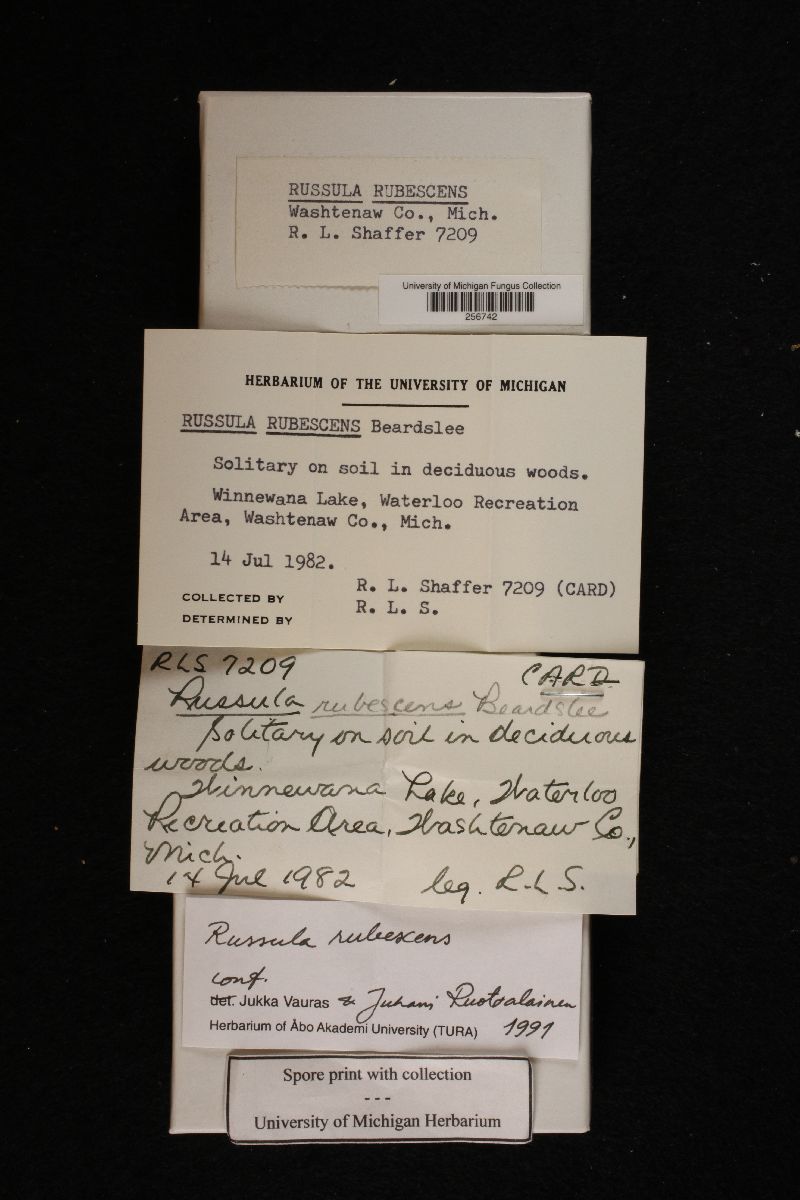 RUSSULA RUBESCENS
Washtenaw Co., Mich.
R. L. Shaffer 7209
University of Michigan Fungus Collection
256742
HERBARIUM OF THE UNIVERSITY OF MICHIGAN
RUSSULA RUBESCENS Beardslee
Solitary on soil in deciduous woods.
Winnewana Lake, Waterloo Recreation
Area, Washtenaw Co., Mich.
14 Jul 1982.
R. L. Shaffer 7209 (CARD)
COLLECTED BY
R. L. S.
DETERMINED BY
RLS 7209 CARD
Russula rubescens Beardslee
Solitary on soil in deciduous
woods.
Winnewana Lake, Waterloo
Recreation Area, Washtenaw Co.,
Mich.
14 Jul 1982 leg. R.L.S.
Russula rubescens
conf.
det. Jukka Vauras & Juhani Ruotsalainen
Herbarium of Åbo Akademi University (TURA) 1991
Spore print with collection
---
University of Michigan Herbarium